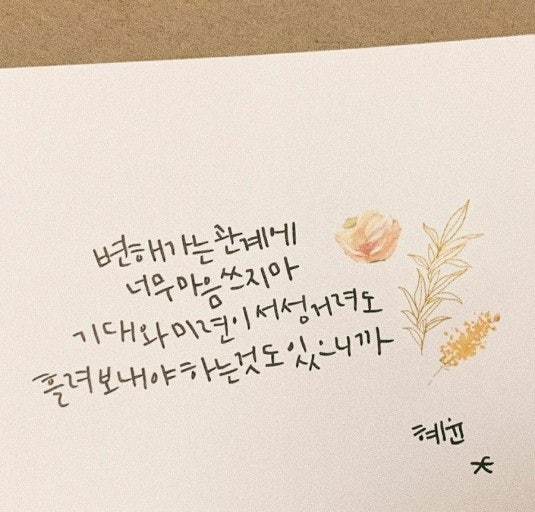 변해가는 관계에
너무 마음 쓰지마
기대와 미련이 서성거려도
흘려보내야 하는 것도 있으니까
혜윤